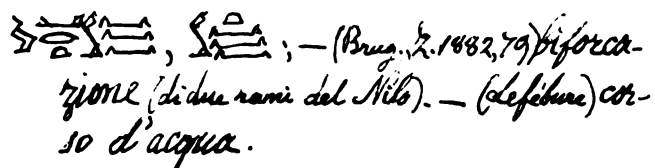 , ; — (Brug., Z. 1882, 79) biforca-
zione (di due rami del Nilo). — (Lefébure) cor-
so d'acqua.